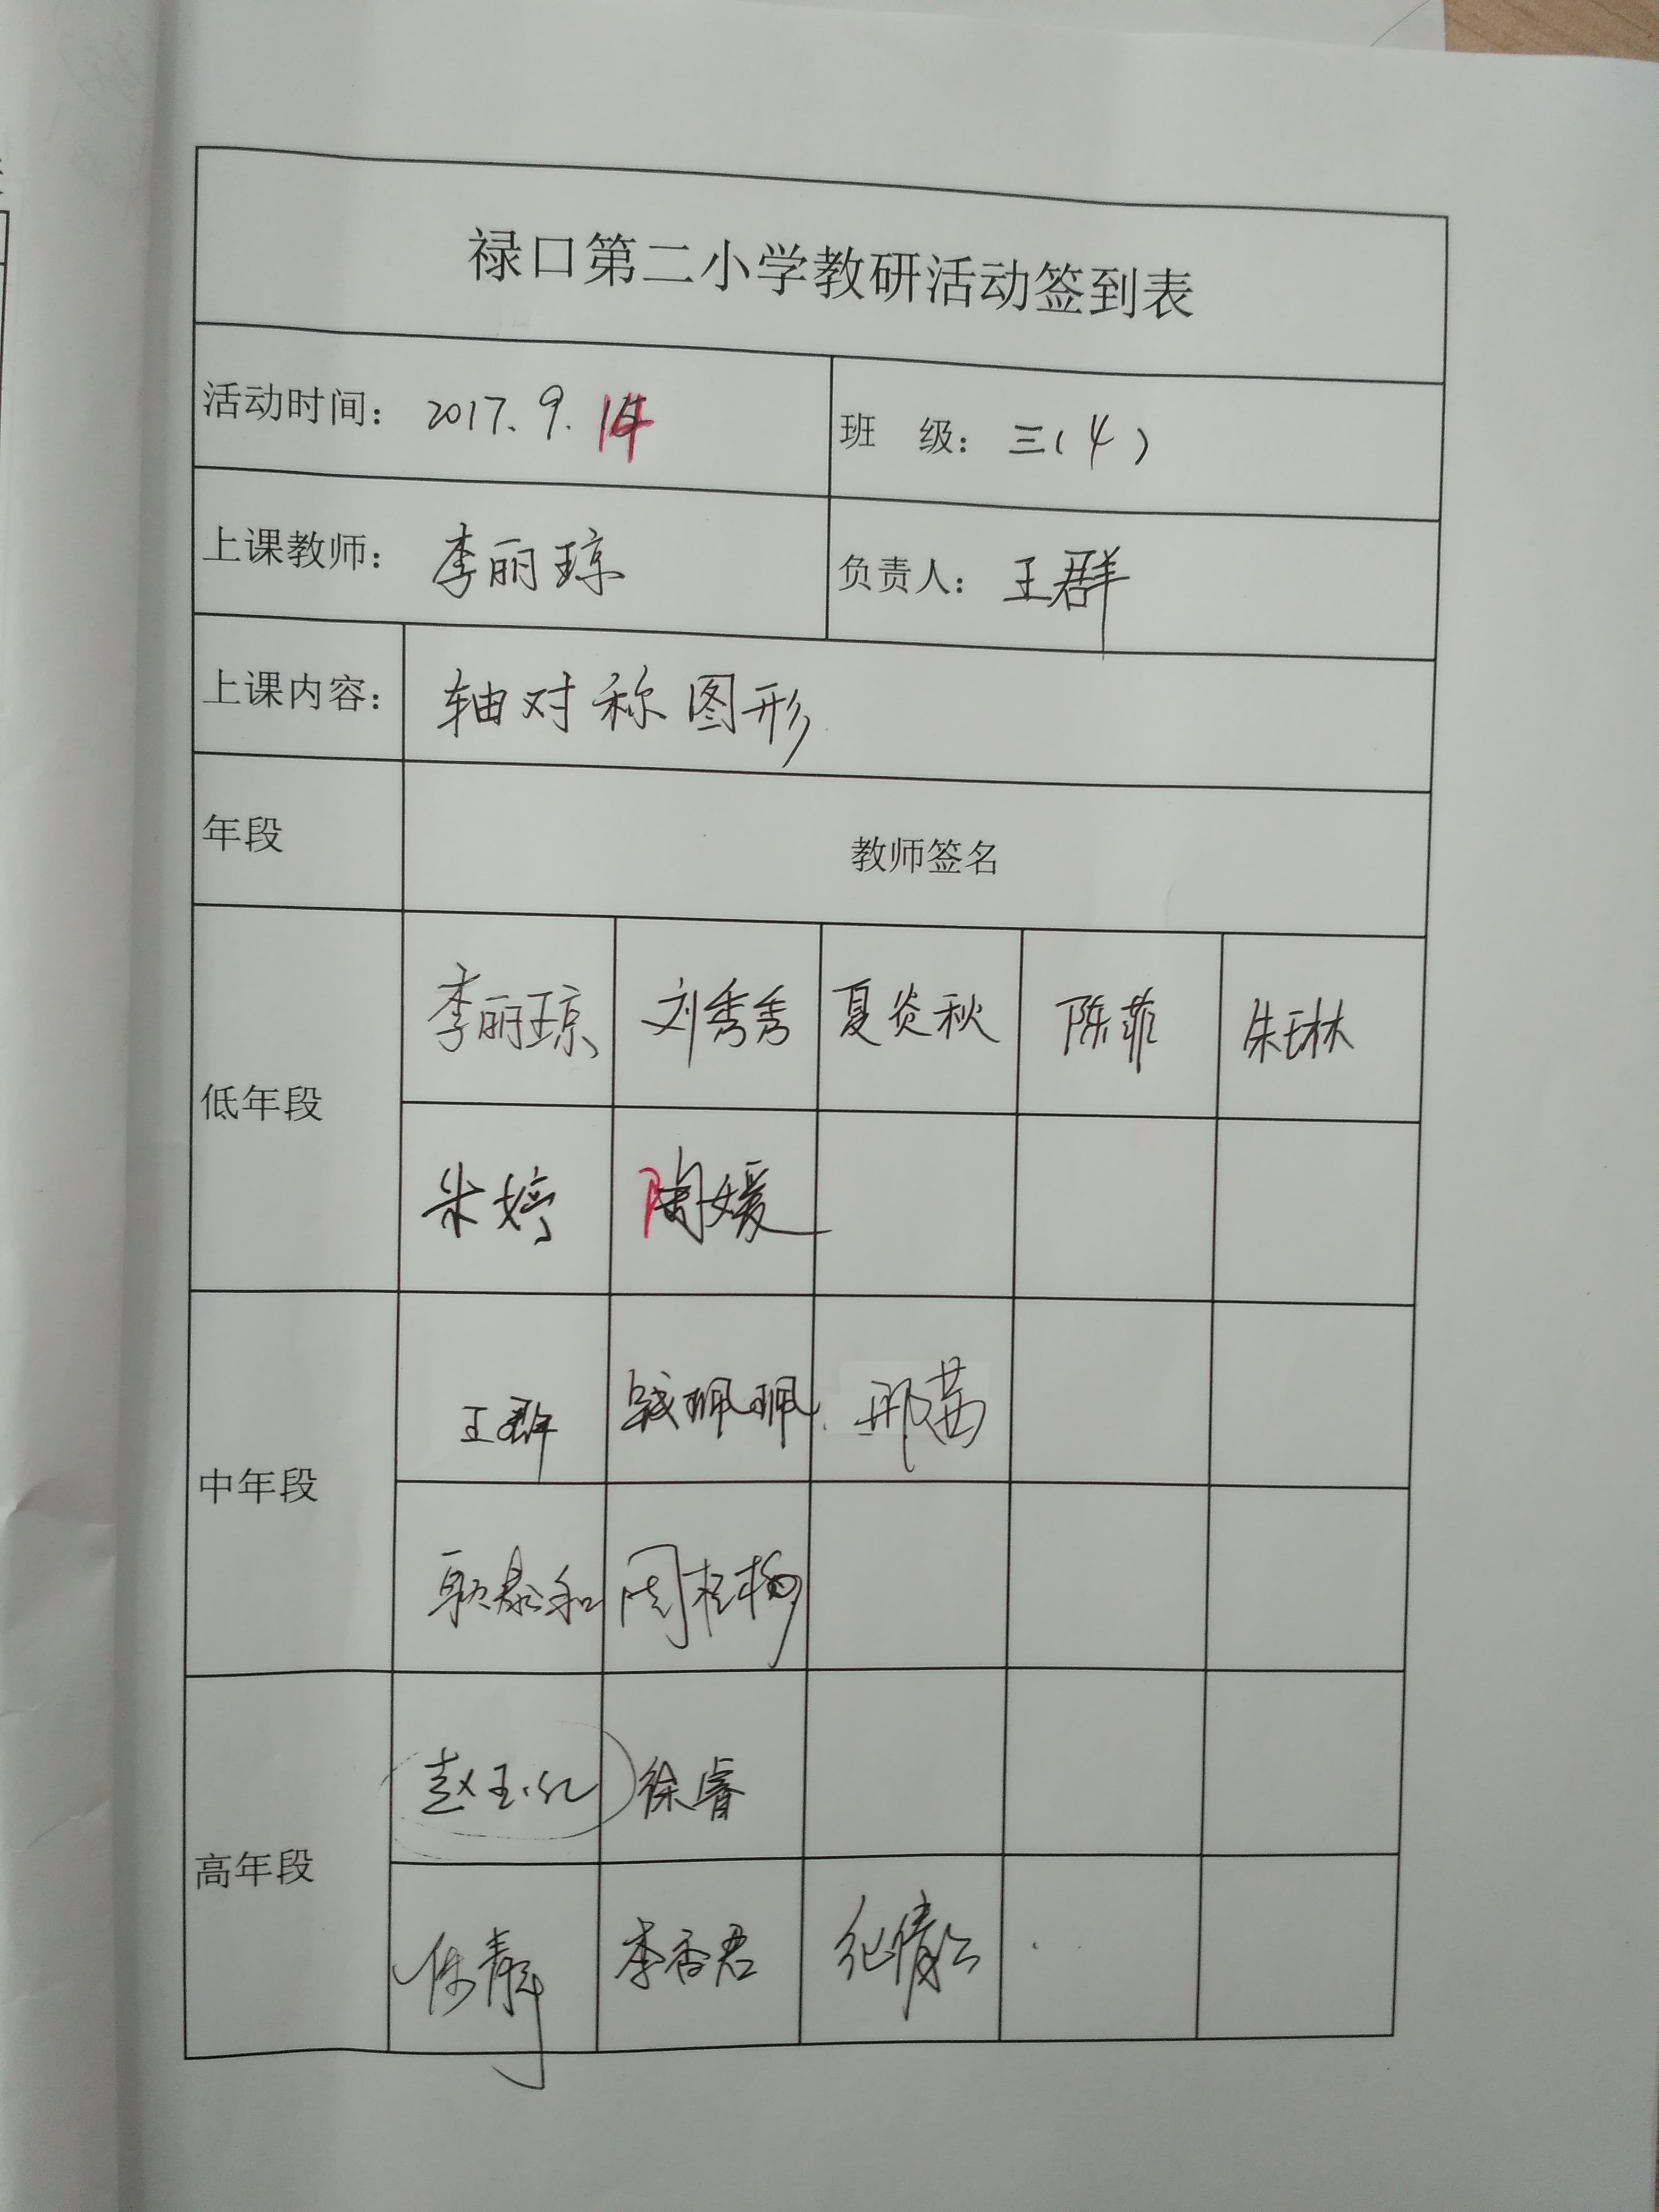 禄口第二小学教研活动签到表
活动时间： 2017.9.14 班 级： 三（4）
上课教师： 李丽琼 负责人： 王群
上课内容： 轴对称图形
年段 教师签名
低年段
李丽琼 刘秀秀 夏炎秋 陈菲 朱琳
朱婷 陶媛
中年段
王群 钱珮珮 邢茜
耿泰和 周桂梅
高年段
赵玉红 徐睿
陈静 李香君 纪倩